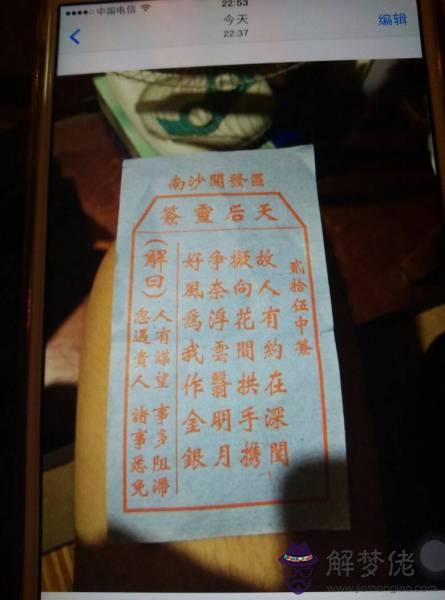 中国电信
22:53
今天
22:37
编辑
南沙開發區
天后靈簽
貳拾伍中簽
故人有約在深閨
擬向花間拱手携
争奈浮雲翳明月
好風爲我作金銀
(解曰)
人有謀望 事多阻滯
忽遇貴人 諸事悉免
解梦佬
www.jiemenglao.com